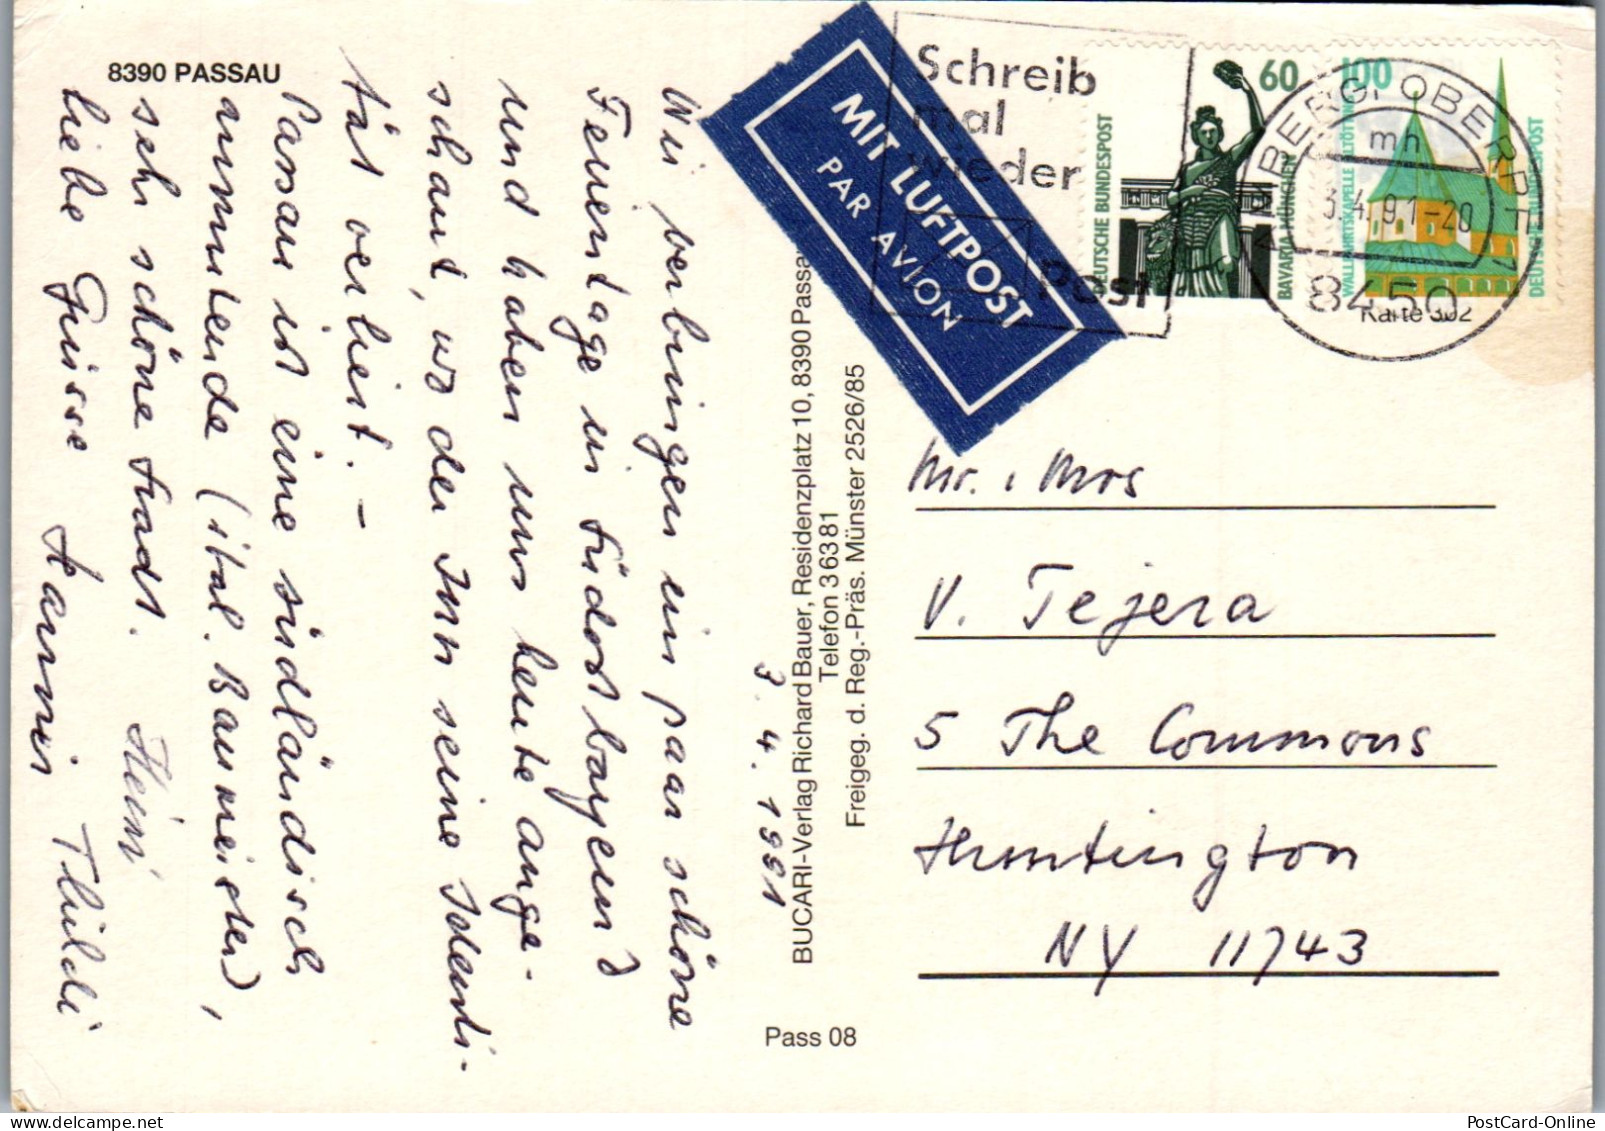 8390 PASSAU
Wir verbringen ein paar schöne
Feiertage in Südostbayern
und haben uns heute ange-
schaut, wo der Inn seine Identi-
tät verliert. –
Passau ist eine südländisch
anmutende (ital. Baumeister),
sehr schöne Stadt.
Liebe Grüsse
3. 4. 1991
BUCARI-Verlag Richard Bauer, Residenzplatz 10, 8390 Passau
Telefon 3 63 81
Freigeg. d. Reg.-Präs. Münster 2526/85
Pass 08
MIT LUFTPOST
PAR AVION
Schreib
mal
wieder
Post
60
DEUTSCHE BUNDESPOST
BAVARIA MÜNCHEN
100
DEUTSCHE BUNDESPOST
mh
3.4.91-20
8450
Karte 302
Mr. + Mrs
V. Tejera
5 The Commons
Huntington
NY 11743
PostCard-Online